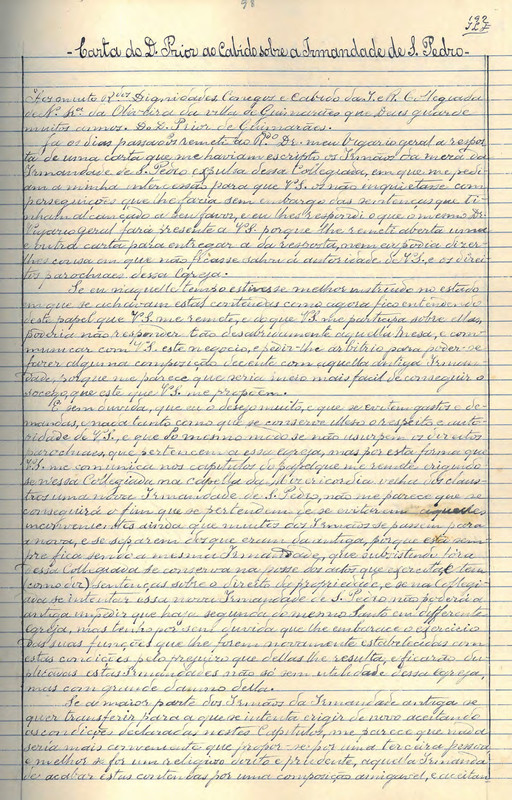 98
- Carta do D. Prior ao Cabido sobre a Irmandade de S. Pedro -
muito Rdos Dignidades Conegos e Cabido da I. e R. Collegiada
de N. Sra da Oliveira da villa de Guimarães que Deus guarde
muitos annos. Do D. Prior de Guimarães.
Ja os dias passados remeti ao Rdo Dr. meu Vigario geral a respos-
ta de uma carta que me haviam escripto os Irmãos da meza da
Irmandade de S. Pedro expulsa dessa Collegiada, em que me pedi-
am a minha intercessão para que V.S. os não inquietasse com
perseguições que lhe fazia sem embargo das sentenças que ti-
nham alcançado a seu favor, e eu lhes respondi o que o mesmo Dr.
Vigario geral fará presente a V.S. porque lhe remeti aberta uma
e outra carta para entregar a da resposta, nem eu podia dizer-
lhes cousa em que não ficasse salva a autoridade de V.S. e os direi-
tos parochiaes dessa Igreja.
Se eu naquelle tempo estivesse melhor instruido no estado
em que se achavam estas contendas como agora fico entendendo
deste papel que V.S. me remete, e do que V.S. me participa sobre ellas,
poderia não responder tão desabridamente aquella Mesa, e com-
municar com V.S. este negocio, e pedir-lhe arbitrio para poder-se
fazer alguma composição decente com aquella antiga Irman-
dade, porque me parece que seria meio mais facil de conseguir o
socego, que este que V.S. me propoem.
É sem duvida, que eu o desejo muito, e que se evitem gastos e de-
mandas, e nada tanto como que se conserve illeso o respeito e auto-
ridade de V.S., e que do mesmo modo se não usurpem os direitos
parochiaes, que pertencem a essa Igreja, mas por esta forma que
V.S. me comunica nos capitulos do papel que me remete erigindo
se nessa Collegiada na capella da Mizericordia velha dos claus-
tros uma nova Irmandade de S. Pedro, não me parece que se
conseguirá o fim que se pertende, de se evitarem aquelles
inconvenientes ainda que muitos dos Irmãos se passem para
a nova, e se separem dos que eram da antiga, porque esta sem-
pre fica sendo a mesma Irmandade, que subsistindo fóra
dessa Collegiada se conserva na posse dos actos que exercita, e tem
(como diz) sentenças sobre o direito de propriedade, e se na Collegi-
ada se intentar essa nova Irmandade de S. Pedro não poderá a
antiga impedir que haja segunda do mesmo Santo em differente
Igreja, mas tenho por sem duvida que lhe embarace o exercicio
das suas funções que lhe forem novamente estabelecidas com
estas condições pelo prejuizo que dellas lhe resulta, e ficarão du-
plicadas estas Irmandades não só sem utilidade dessa Igreja,
mas com grande damno della.
Se a maior parte dos Irmãos da Irmandade antiga se
quer transferir para a que se intenta erigir de novo aceitando
as condições declaradas nestes Capitulos, me parece que nada
seria mais conveniente que propor-se por uma terceira pessoa
e melhor se for um religioso douto e prudente, aquella Irmanda-
de acabar estas contendas por uma composição amigavel, e aceitan-